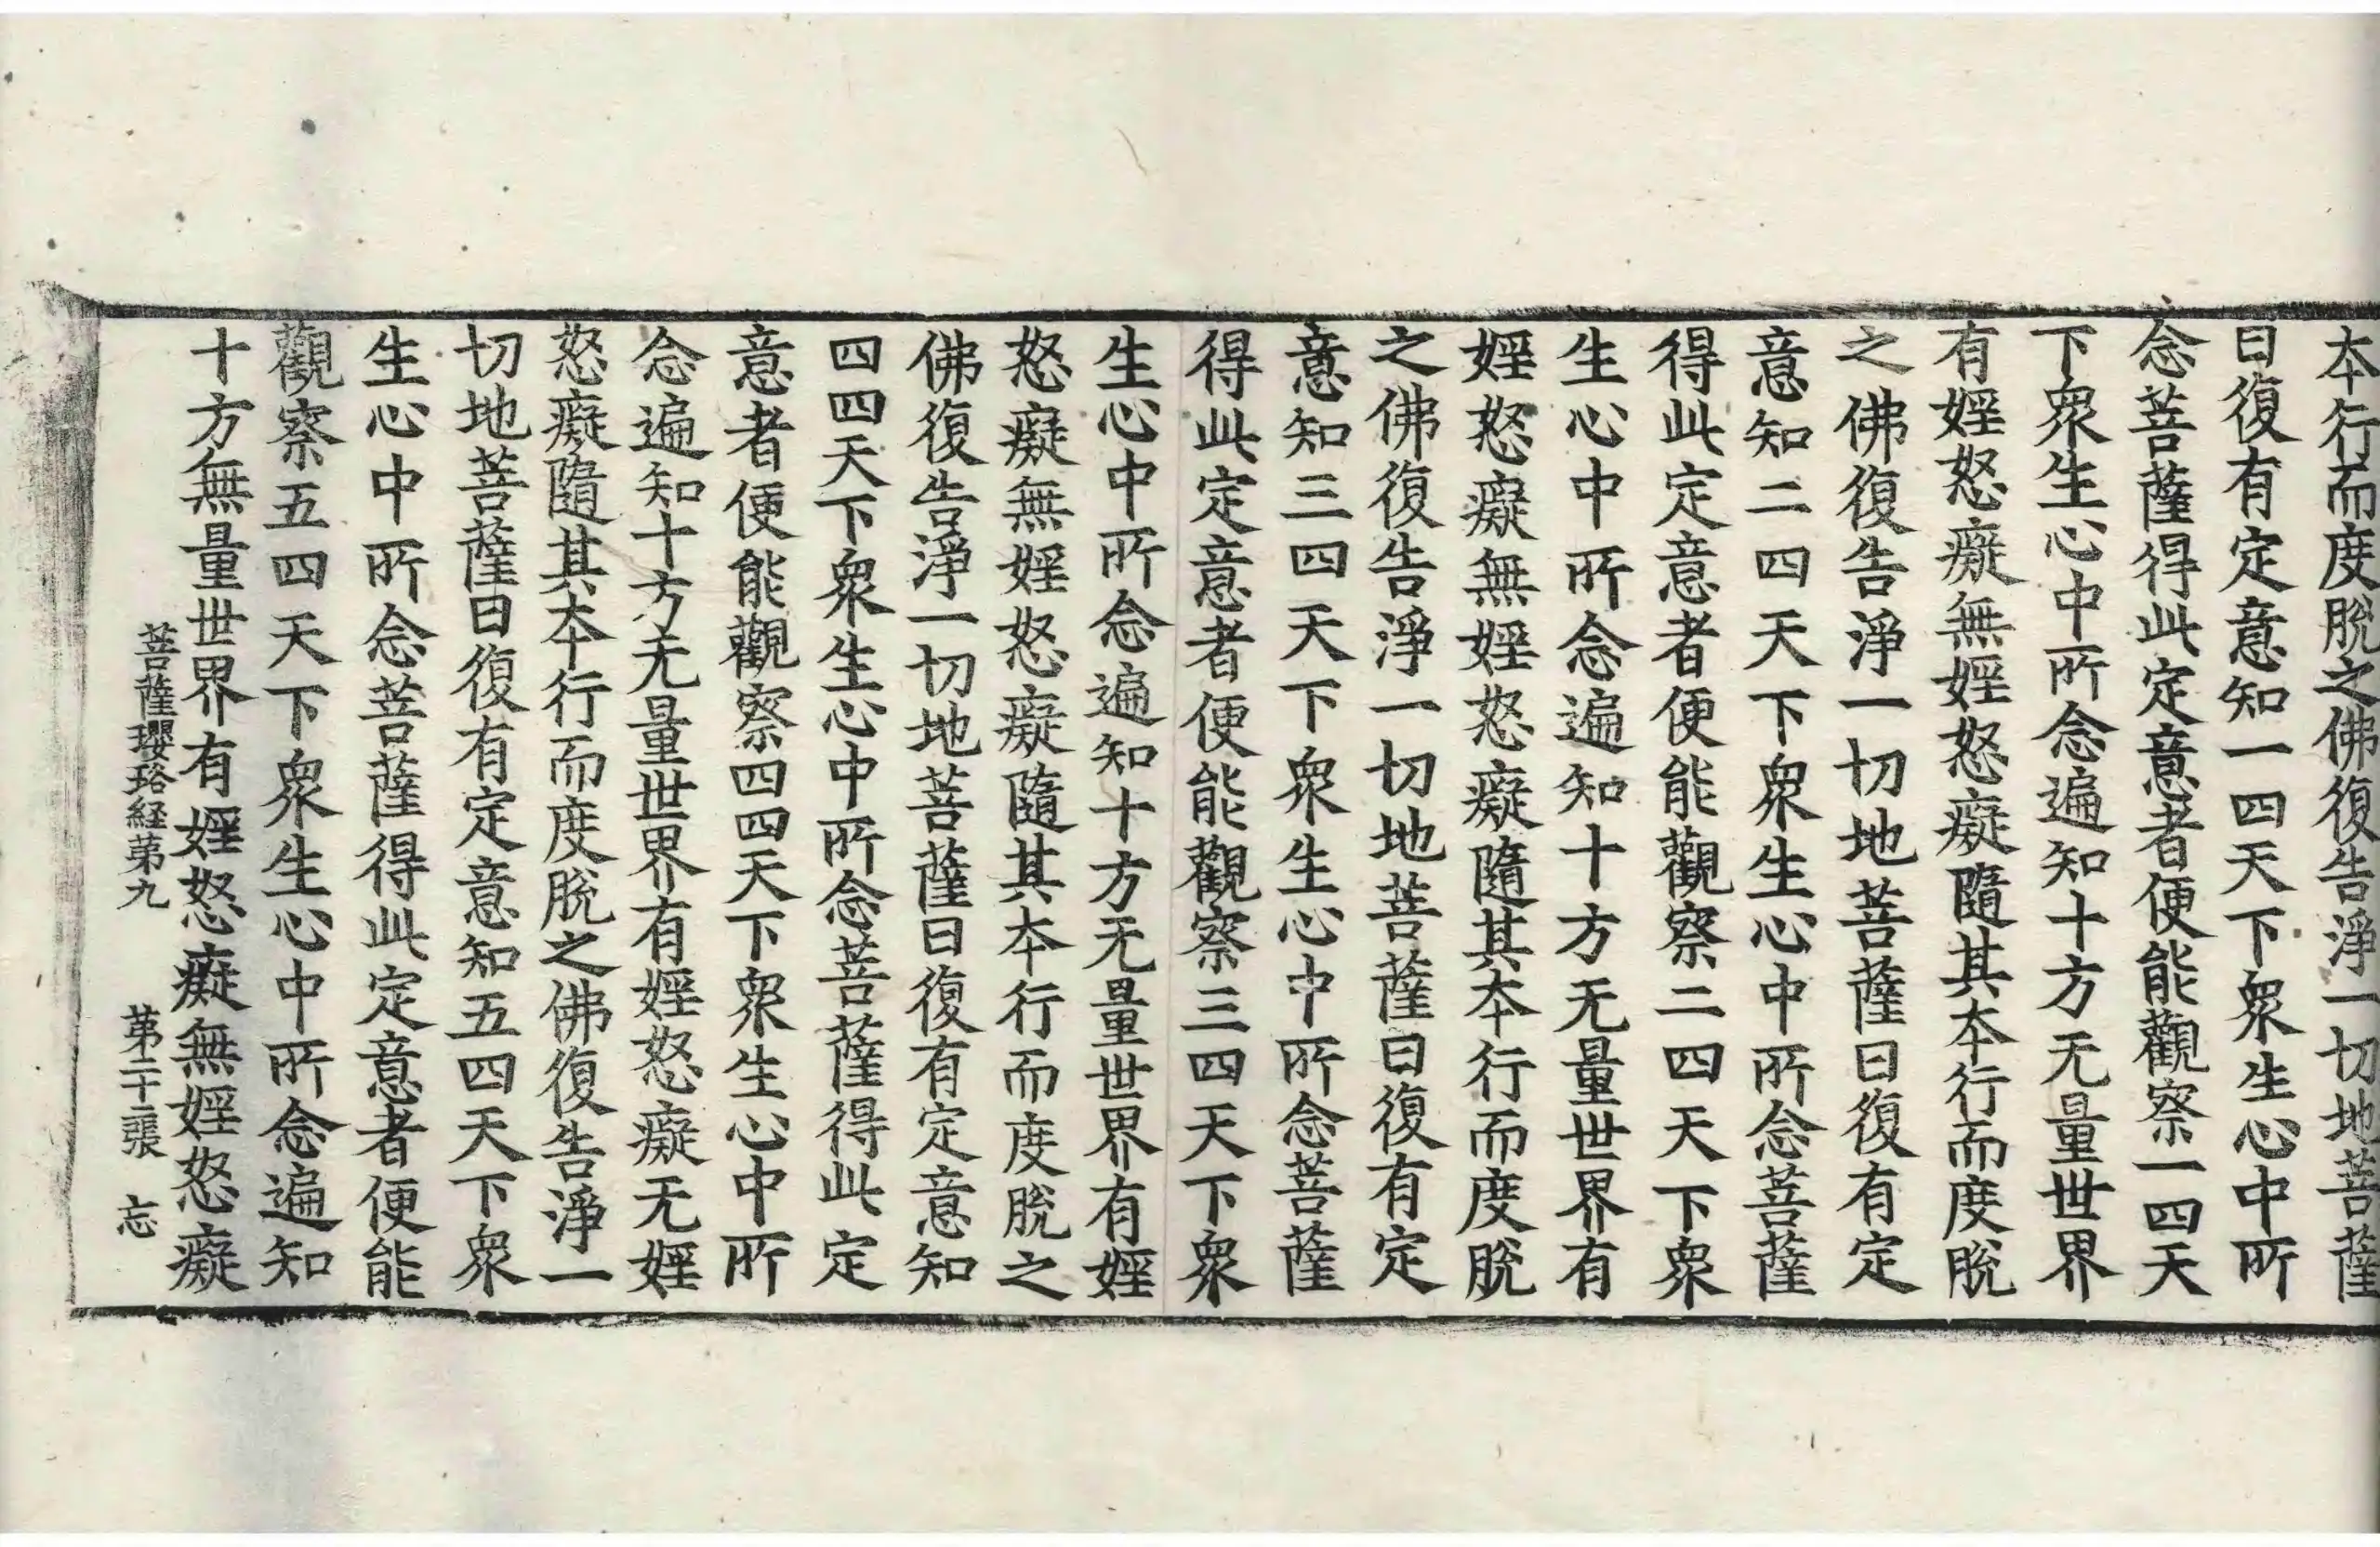 本行而度脫之佛復告淨一切地菩薩
曰復有定意知一四天下衆生心中所
念菩薩得此定意者便能觀察一四天
下衆生心中所念遍知十方无量世界
有婬怒癡無婬怒癡隨其本行而度脫
之佛復告淨一切地菩薩曰復有定
意知二四天下衆生心中所念菩薩
得此定意者便能觀察二四天下衆
生心中所念遍知十方无量世界有
婬怒癡無婬怒癡隨其本行而度脫
之佛復告淨一切地菩薩曰復有定
意知三四天下衆生心中所念菩薩
得此定意者便能觀察三四天下衆
生心中所念遍知十方无量世界有婬
怒癡無婬怒癡隨其本行而度脫之
佛復告淨一切地菩薩曰復有定意知
四四天下衆生心中所念菩薩得此定
意者便能觀察四四天下衆生心中所
念遍知十方无量世界有婬怒癡无婬
怒癡隨其本行而度脫之佛復告淨一
切地菩薩曰復有定意知五四天下衆
生心中所念菩薩得此定意者便能
觀察五四天下衆生心中所念遍知
十方無量世界有婬怒癡無婬怒癡
菩薩瓔珞経第九 第二十二張 忘